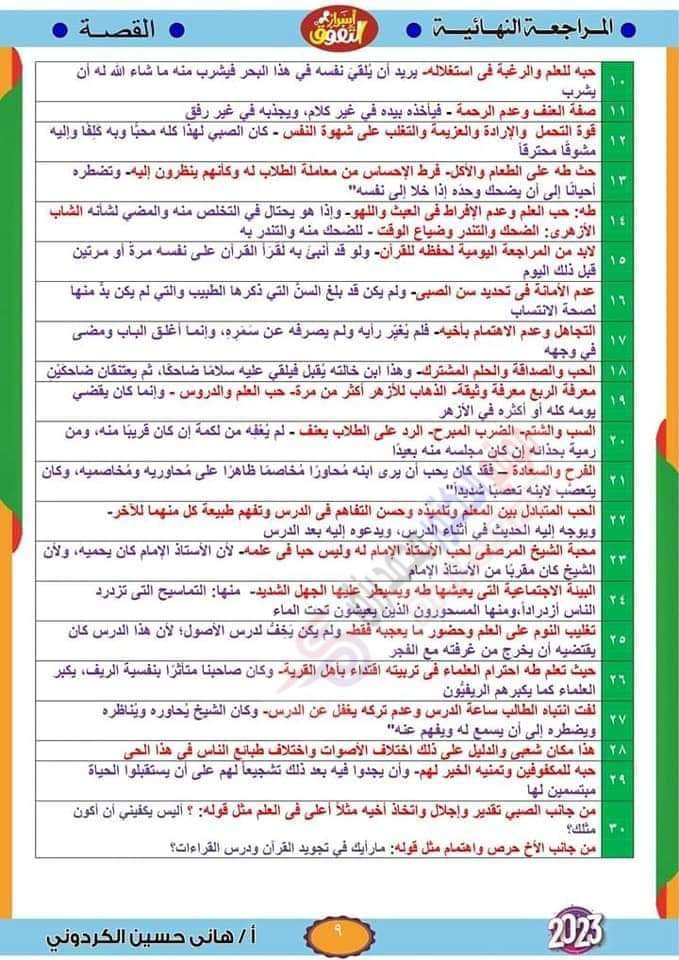 المراجعة النهائية
أسرار التفوق
القصة
١٠
حبه للعلم والرغبة فى استغلاله- يريد أن يُلقيَ نفسه في هذا البحر فيشرب منه ما شاء الله له أن
يشرب
١١
صفة العنف وعدم الرحمة - فيأخذه بيده في غير كلام، ويجذبه في غير رفق
١٢
قوة التحمل والإرادة والعزيمة والتغلب على شهوة النفس - كان الصبي لهذا كله محبًا وبه كَلِفًا وإليه
مشوقًا محترقاً
١٣
حث طه على الطعام والأكل- فرط الإحساس من معاملة الطلاب له وكأنهم ينظرون إليه- وتضطره
أحيانًا إلى أن يضحك وحده إذا خلا إلى نفسه"
١٤
طه: حب العلم وعدم الإفراط فى العبث واللهو- وإذا هو يحتال في التخلص منه والمضي لشأنه الشاب
الأزهرى: الضحك والتندر وضياع الوقت - للضحك منه والتندر به
١٥
لابد من المراجعة اليومية لحفظه للقرآن- ولو قد أنبئ به لقرَأ القرآن على نفسه مرة أو مرتين
قبل ذلك اليوم
١٦
عدم الأمانة فى تحديد سن الصبى- ولم يكن قد بلغ السنَّ التي ذكرها الطبيب والتي لم يكن بدٌ منها
لصحة الانتساب
١٧
التجاهل وعدم الاهتمام بأخيه- فلم يُغيِّر رأيه ولم يصرفه عن سَمَرِهِ، وإنما أغلق الباب ومضى
في وجهه
١٨
الحب والصداقة والحلم المشترك- وهذا ابن خالته يُقبل فيلقي عليه سلامًا ضاحكًا، ثم يعتنقان ضاحكَيْنِ
١٩
معرفة الربع معرفة وثيقة- الذهاب للأزهر أكثر من مرة- حب العلم والدروس - وإنما كان يقضي
يومه كله أو أكثره في الأزهر
٢٠
السب والشتم- الضرب المبرح- الرد على الطلاب بعنف - لم يُعْفِه من لكمة إن كان قريبًا منه، ومن
رمية بحذائه إن كان مجلسه منه بعيدًا
٢١
الفرح والسعادة - فقد كان يحب أن يرى ابنه مُحاورًا مُخاصمًا ظاهرًا على مُحاوريه ومُخاصميه، وكان
يتعصب لابنه تعصبًا شديدًا"
٢٢
الحب المتبادل بين المعلم وتلميذه وحسن التفاهم فى الدرس وتفهم طبيعة كل منهما للآخر-
ويوجه إليه الحديث في أثناء الدرس، ويدعوه إليه بعد الدرس
٢٣
محبة الشيخ المرصفى لحب الأستاذ الإمام له وليس حبا فى علمه- لأن الأستاذ الإمام كان يحميه، ولأن
الشيخ كان مقربًا من الأستاذ الإمام
٢٤
البيئة الاجتماعية التى يعيشها طه ويسيطر عليها الجهل الشديد- منها: التماسيح التى تزدرد
الناس ازدراداً،ومنها المسحورون الذين يعيشون تحت الماء
٢٥
تغليب النوم على العلم وحضور ما يعجبه فقط- ولم يكن يَخفُّ لدرس الأصول؛ لأن هذا الدرس كان
يقتضيه أن يخرج من غرفته مع الفجر
٢٦
حيث تعلم طه احترام العلماء فى تربيته اقتداء بأهل القرية- وكان صاحبنا متأثرًا بنفسية الريف، يكبر
العلماء كما يكبرهم الريفيُّون
٢٧
لفت انتباه الطالب ساعة الدرس وعدم تركه يغفل عن الدرس- وكان الشيخ يُحاوره ويُناظره
ويضطره إلى أن يسمع له ويفهم عنه"
٢٨
هذا مكان شعبى والدليل على ذلك اختلاف الأصوات واختلاف طبائع الناس فى هذا الحى
٢٩
حبه للمكفوفين وتمنيه الخير لهم- وأن يجدوا فيه بعد ذلك تشجيعاً لهم على أن يستقبلوا الحياة
مبتسمين لها
٣٠
من جانب الصبي تقدير وإجلال واتخاذ أخيه مثلاً أعلى فى العلم مثل قوله: ؟ أليس يكفيني أن أكون
مثلك؟
من جانب الأخ حرص واهتمام مثل قوله: مارأيك في تجويد القرآن ودرس القراءات؟
2023
٩
أ/ هانى حسين الكردوني